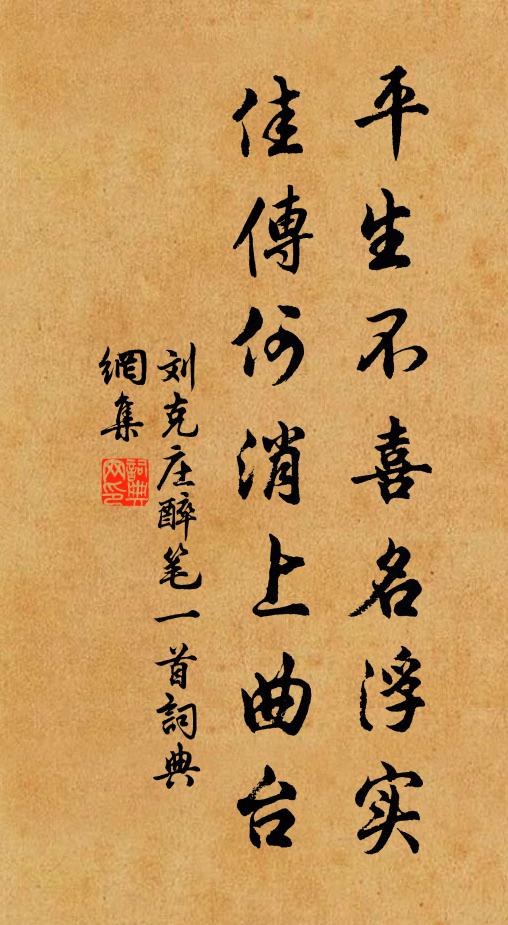 平生不喜名浮实
佳傳何消上曲台
刘克庄醉笔一首詞典
網集
詞典
网印